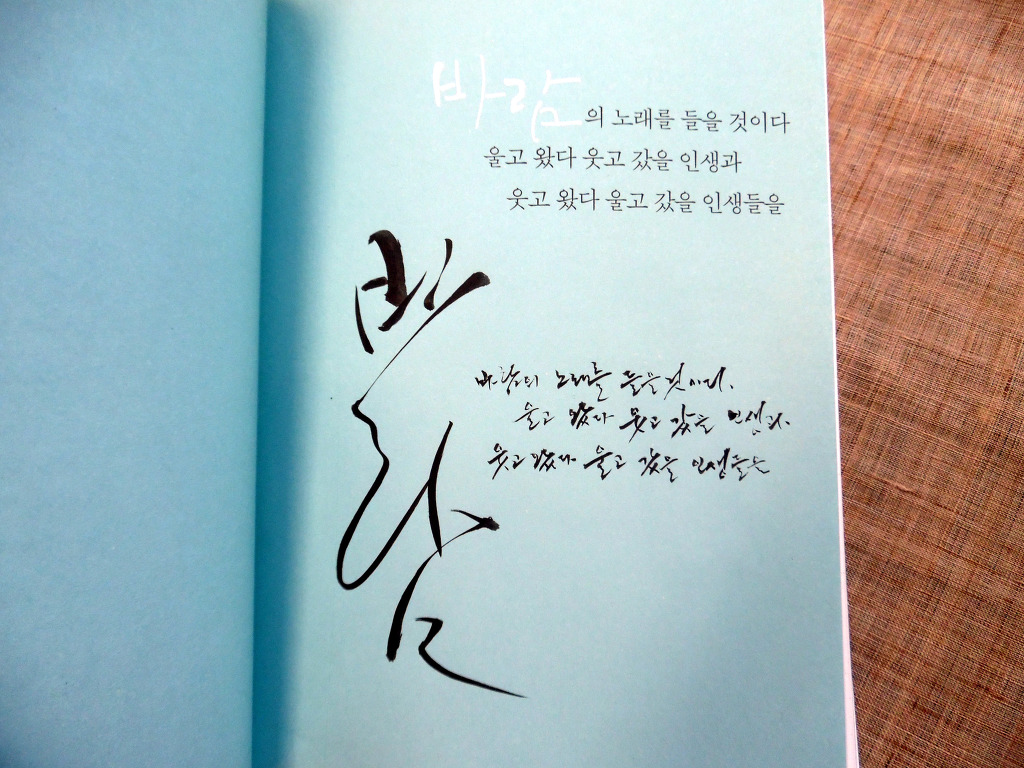 바람의 노래를 들을 것이다
울고 왔다 웃고 갔을 인생과
웃고 왔다 울고 갔을 인생들을
바람
바람의 노래를 들을 것이다.
울고 왔다 웃고 갔을 인생과.
웃고 왔다 울고 갔을 인생들을